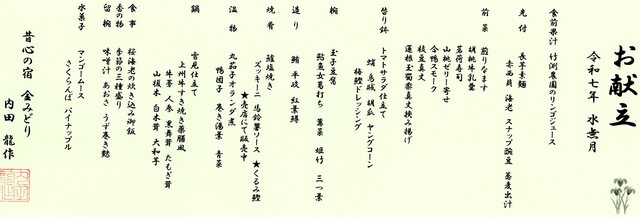 お献立
令和七年 水無月
食前果汁 竹渕農園のリンゴジュース
先付 長芋素麺
赤西貝 海老 スナップ豌豆 蕎麦出汁
前菜 煎りなます
胡桃牛乳羹
茗荷寿司
山桃ゼリー寄せ
合鴨スモーク
枝豆真丈
蓮根玉蜀黍真丈挟み揚げ
替り鉢 トマトサラダ仕立て
蛸 烏賊 胡瓜 ヤングコーン
梅鰹ドレッシング
椀 玉子豆腐
鮎魚女葛打ち 蓴菜 姫竹 三つ葉
造り 鮪 平政 紅富鱒
焼肴 鱸塩焼き
ズッキーニ 馬鈴薯ソース ★くるみ鰹
★売店にて販売中
温物 丸茄子オランダ煮
鴨団子 巻き湯葉 青菜
鍋 雪見仕立て
上州牛すき焼き薬膳風
牛蒡 人参 黒舞茸 たもぎ茸
山伏茸 白木茸 大和芋
食事 桜海老の炊き込み御飯
香の物 季節の三種盛り
留椀 味噌汁 あおさ うず巻き麩
水菓子 マンゴームース
さくらんぼ パイナップル
昔心の宿 金みどり
内田 龍作